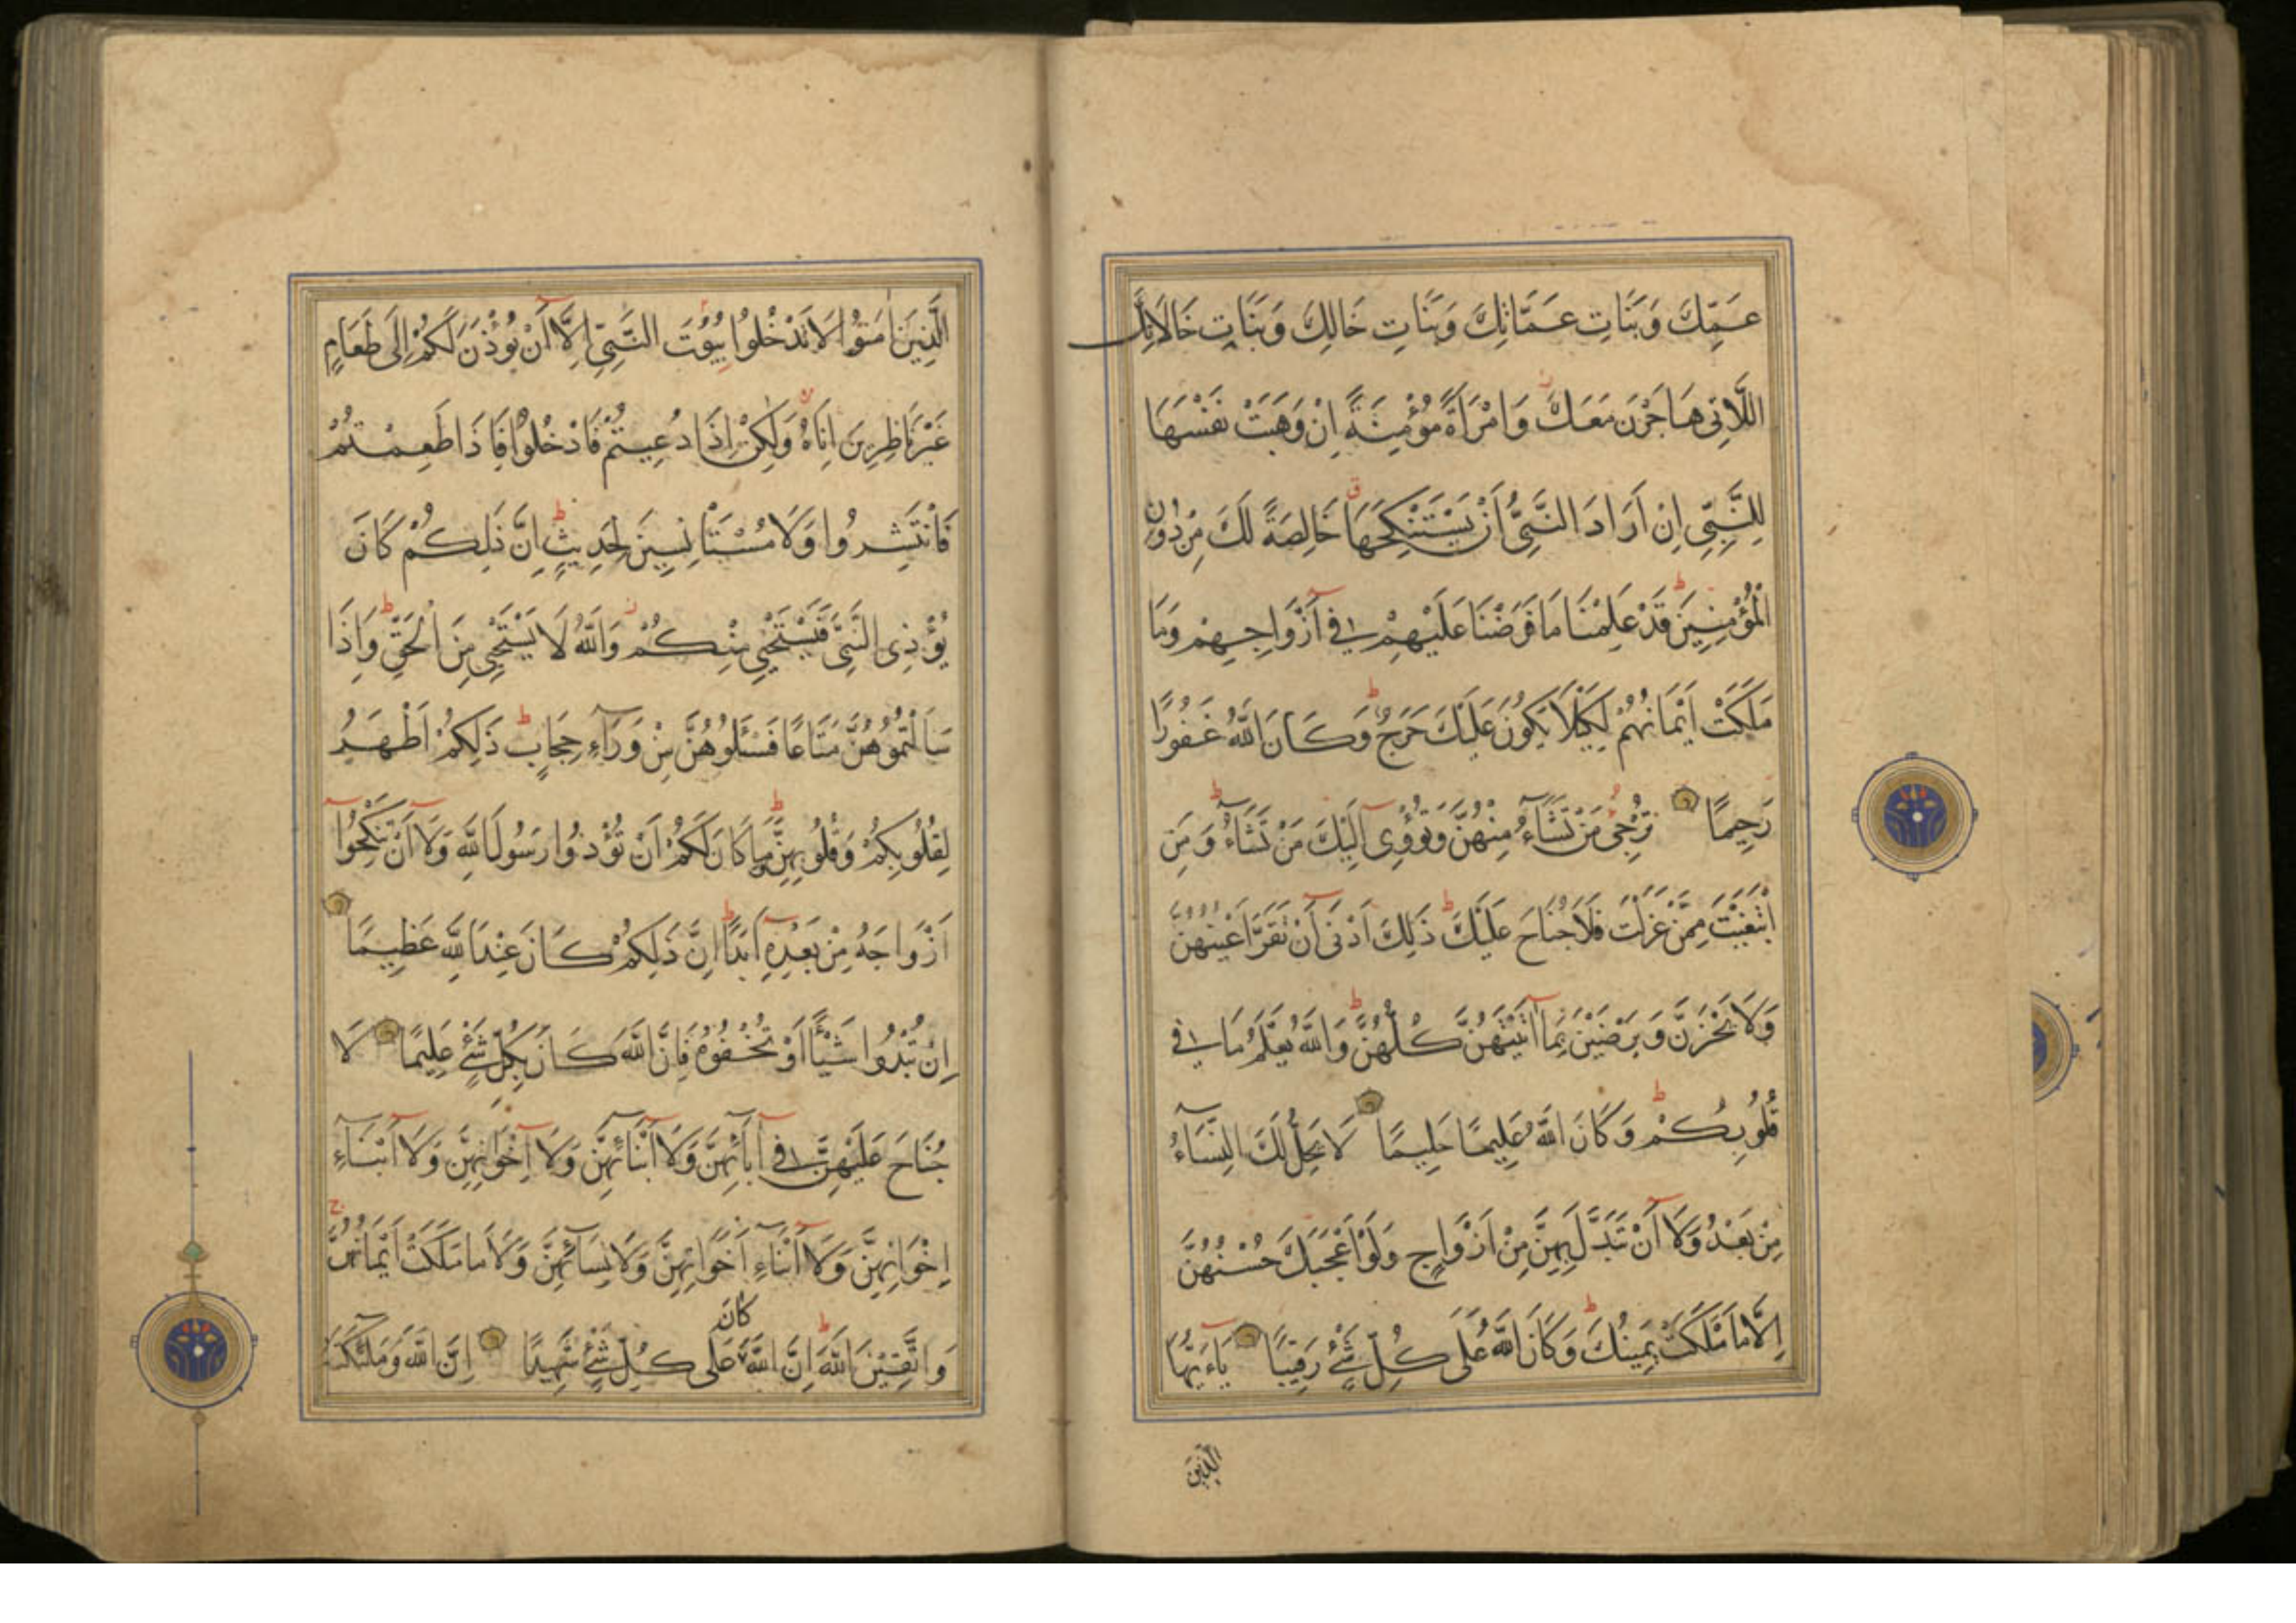 عَمِّكَ وَبَنَاتِ عَمَّاتِكَ وَبَنَاتِ خَالِكَ وَبَنَاتِ خَالَاتِكَ
اللَّاتِى هَاجَرْنَ مَعَكَ وَامْرَأَةً مُؤْمِنَةً اِنْ وَهَبَتْ نَفْسَهَا
لِلنَّبِىِّ اِنْ اَرَادَ النَّبِىُّ اَنْ يَسْتَنْكِحَهَا خَالِصَةً لَكَ مِنْ دُونِ
الْمُؤْمِنِينَ قَدْ عَلِمْنَا مَا فَرَضْنَا عَلَيْهِمْ فِى اَزْوَاجِهِمْ وَمَا
مَلَكَتْ اَيْمَانُهُمْ لِكَيْلَا يَكُونَ عَلَيْكَ حَرَجٌ وَكَانَ اللَّهُ غَفُورًا
رَحِيمًا تُرْجِى مَنْ تَشَاءُ مِنْهُنَّ وَتُؤْوِى اِلَيْكَ مَنْ تَشَاءُ وَمَنِ
ابْتَغَيْتَ مِمَّنْ عَزَلْتَ فَلَا جُنَاحَ عَلَيْكَ ذَلِكَ اَدْنَى اَنْ تَقَرَّ اَعْيُنُهُنَّ
وَلَا يَحْزَنَّ وَيَرْضَيْنَ بِمَا اتَيْتَهُنَّ كُلُّهُنَّ وَاللَّهُ يَعْلَمُ مَا فِى
قُلُوبِكُمْ وَكَانَ اللَّهُ عَلِيمًا حَلِيمًا لَا يَحِلُّ لَكَ النِّسَاءُ
مِنْ بَعْدُ وَلَا اَنْ تَبَدَّلَ بِهِنَّ مِنْ اَزْوَاجٍ وَلَوْ اَعْجَبَكَ حُسْنُهُنَّ
اِلَّا مَا مَلَكَتْ يَمِينُكَ وَكَانَ اللَّهُ عَلَى كُلِّ شَىْءٍ رَقِيبًا يَاءَيُّهَا
الَّذِينَ
الَّذِينَ امَنُوا لَا تَدْخُلُوا بُيُوتَ النَّبِىِّ اِلَّا اَنْ يُؤْذَنَ لَكُمْ اِلَى طَعَامٍ
غَيْرَ نَاظِرِينَ اِنَاهُ وَلَكِنْ اِذَا دُعِيتُمْ فَادْخُلُوا فَاِذَا طَعِمْتُمْ
فَانْتَشِرُوا وَلَا مُسْتَأْنِسِينَ لِحَدِيثٍ اِنَّ ذَلِكُمْ كَانَ
يُؤْذِى النَّبِىَّ فَيَسْتَحْيِى مِنْكُمْ وَاللَّهُ لَا يَسْتَحْيِى مِنَ الْحَقِّ وَاِذَا
سَاَلْتُمُوهُنَّ مَتَاعًا فَسْئَلُوهُنَّ مِنْ وَرَاءِ حِجَابٍ ذَلِكُمْ اَطْهَرُ
لِقُلُوبِكُمْ وَقُلُوبِهِنَّ وَمَا كَانَ لَكُمْ اَنْ تُؤْذُوا رَسُولَ اللَّهِ وَلَا اَنْ تَنْكِحُوا
اَزْوَاجَهُ مِنْ بَعْدِهِ اَبَدًا اِنَّ ذَلِكُمْ كَانَ عِنْدَ اللَّهِ عَظِيمًا
اِنْ تُبْدُوا شَيْئًا اَوْ تُخْفُوهُ فَاِنَّ اللَّهَ كَانَ بِكُلِّ شَىْءٍ عَلِيمًا لَا
جُنَاحَ عَلَيْهِنَّ فِى اَبَائِهِنَّ وَلَا اَبْنَائِهِنَّ وَلَا اِخْوَانِهِنَّ وَلَا اَبْنَاءِ
اِخْوَانِهِنَّ وَلَا اَبْنَاءِ اَخَوَاتِهِنَّ وَلَا نِسَائِهِنَّ وَلَا مَا مَلَكَتْ اَيْمَانُهُنَّ
كَانَ
وَاتَّقِينَ اللَّهَ اِنَّ اللَّهَ عَلَى كُلِّ شَىْءٍ شَهِيدًا اِنَّ اللَّهَ وَمَلَئِكَتَهُ